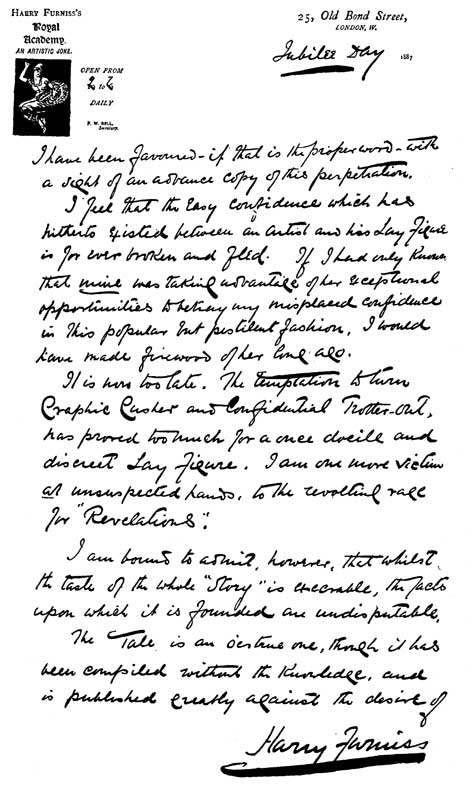 HARRY FURNISS'S
Royal
Academy.
AN ARTISTIC JOKE.
OPEN FROM
to
DAILY
F. W. BELL,
Secretary.
25, Old Bond Street,
LONDON, W.
Jubilee Day 1887
I have been favoured—if that is the proper word—with
a sight of an advance copy of this perpetration.
I feel that the Easy confidence which has
hitherto existed between an Artist and his Lay Figure
is for ever broken and fled. If I had only known
that mine was taking advantage of her exceptional
opportunities to betray my misplaced confidence
in this popular but pestilent fashion, I would
have made firewood of her long ago.
It is now too late. The temptation to turn
Graphic Gusher and Confidential Trotter-out,
has proved too much for a once docile and
discreet Lay Figure. I am one more victim
at unsuspected hands, to the revolting rage
for "Revelations".
I am bound to admit, however, that whilst
the taste of the whole "Story" is execrable, the facts
upon which it is founded are undisputable.
The Tale is an o'ertrue one, though it has
been compiled without the knowledge, and
is published greatly against the desire of
Harry Furniss